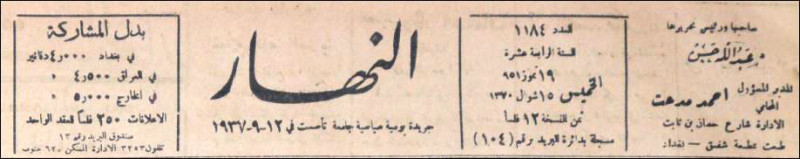 صاحبها ورئيس تحريرها
عبدالله حسن
المدير المسؤول
المحامي احمد مدحت
الادارة شارع حسان بن ثابت
طبعت بمطبعة شفيق - بغداد
العدد ١١٨٤
السنة الرابعة عشرة
١٩ تموز ٩٥١
الخميس ١٥ شوال ١٣٧٠
ثمن النسخة ١٢ فلساً
مسجلة بدائرة البريد رقم (١٠٤)
النهار
جريدة يومية سياسية جامعة تأسست في ١٢-٩-١٩٣٧
بدل المشاركة
في بغداد ٤٫٠٠٠ دنانير
في العراق ٤٫٥٠٠
في الخارج ٥٫٠٠٠
الاعلانات ٢٥٠ فلساً للعقد الواحد
صندوق البريد رقم ١٣
تلفون ٣٢٥٣ الادارة السكن ٦٢ جنوب